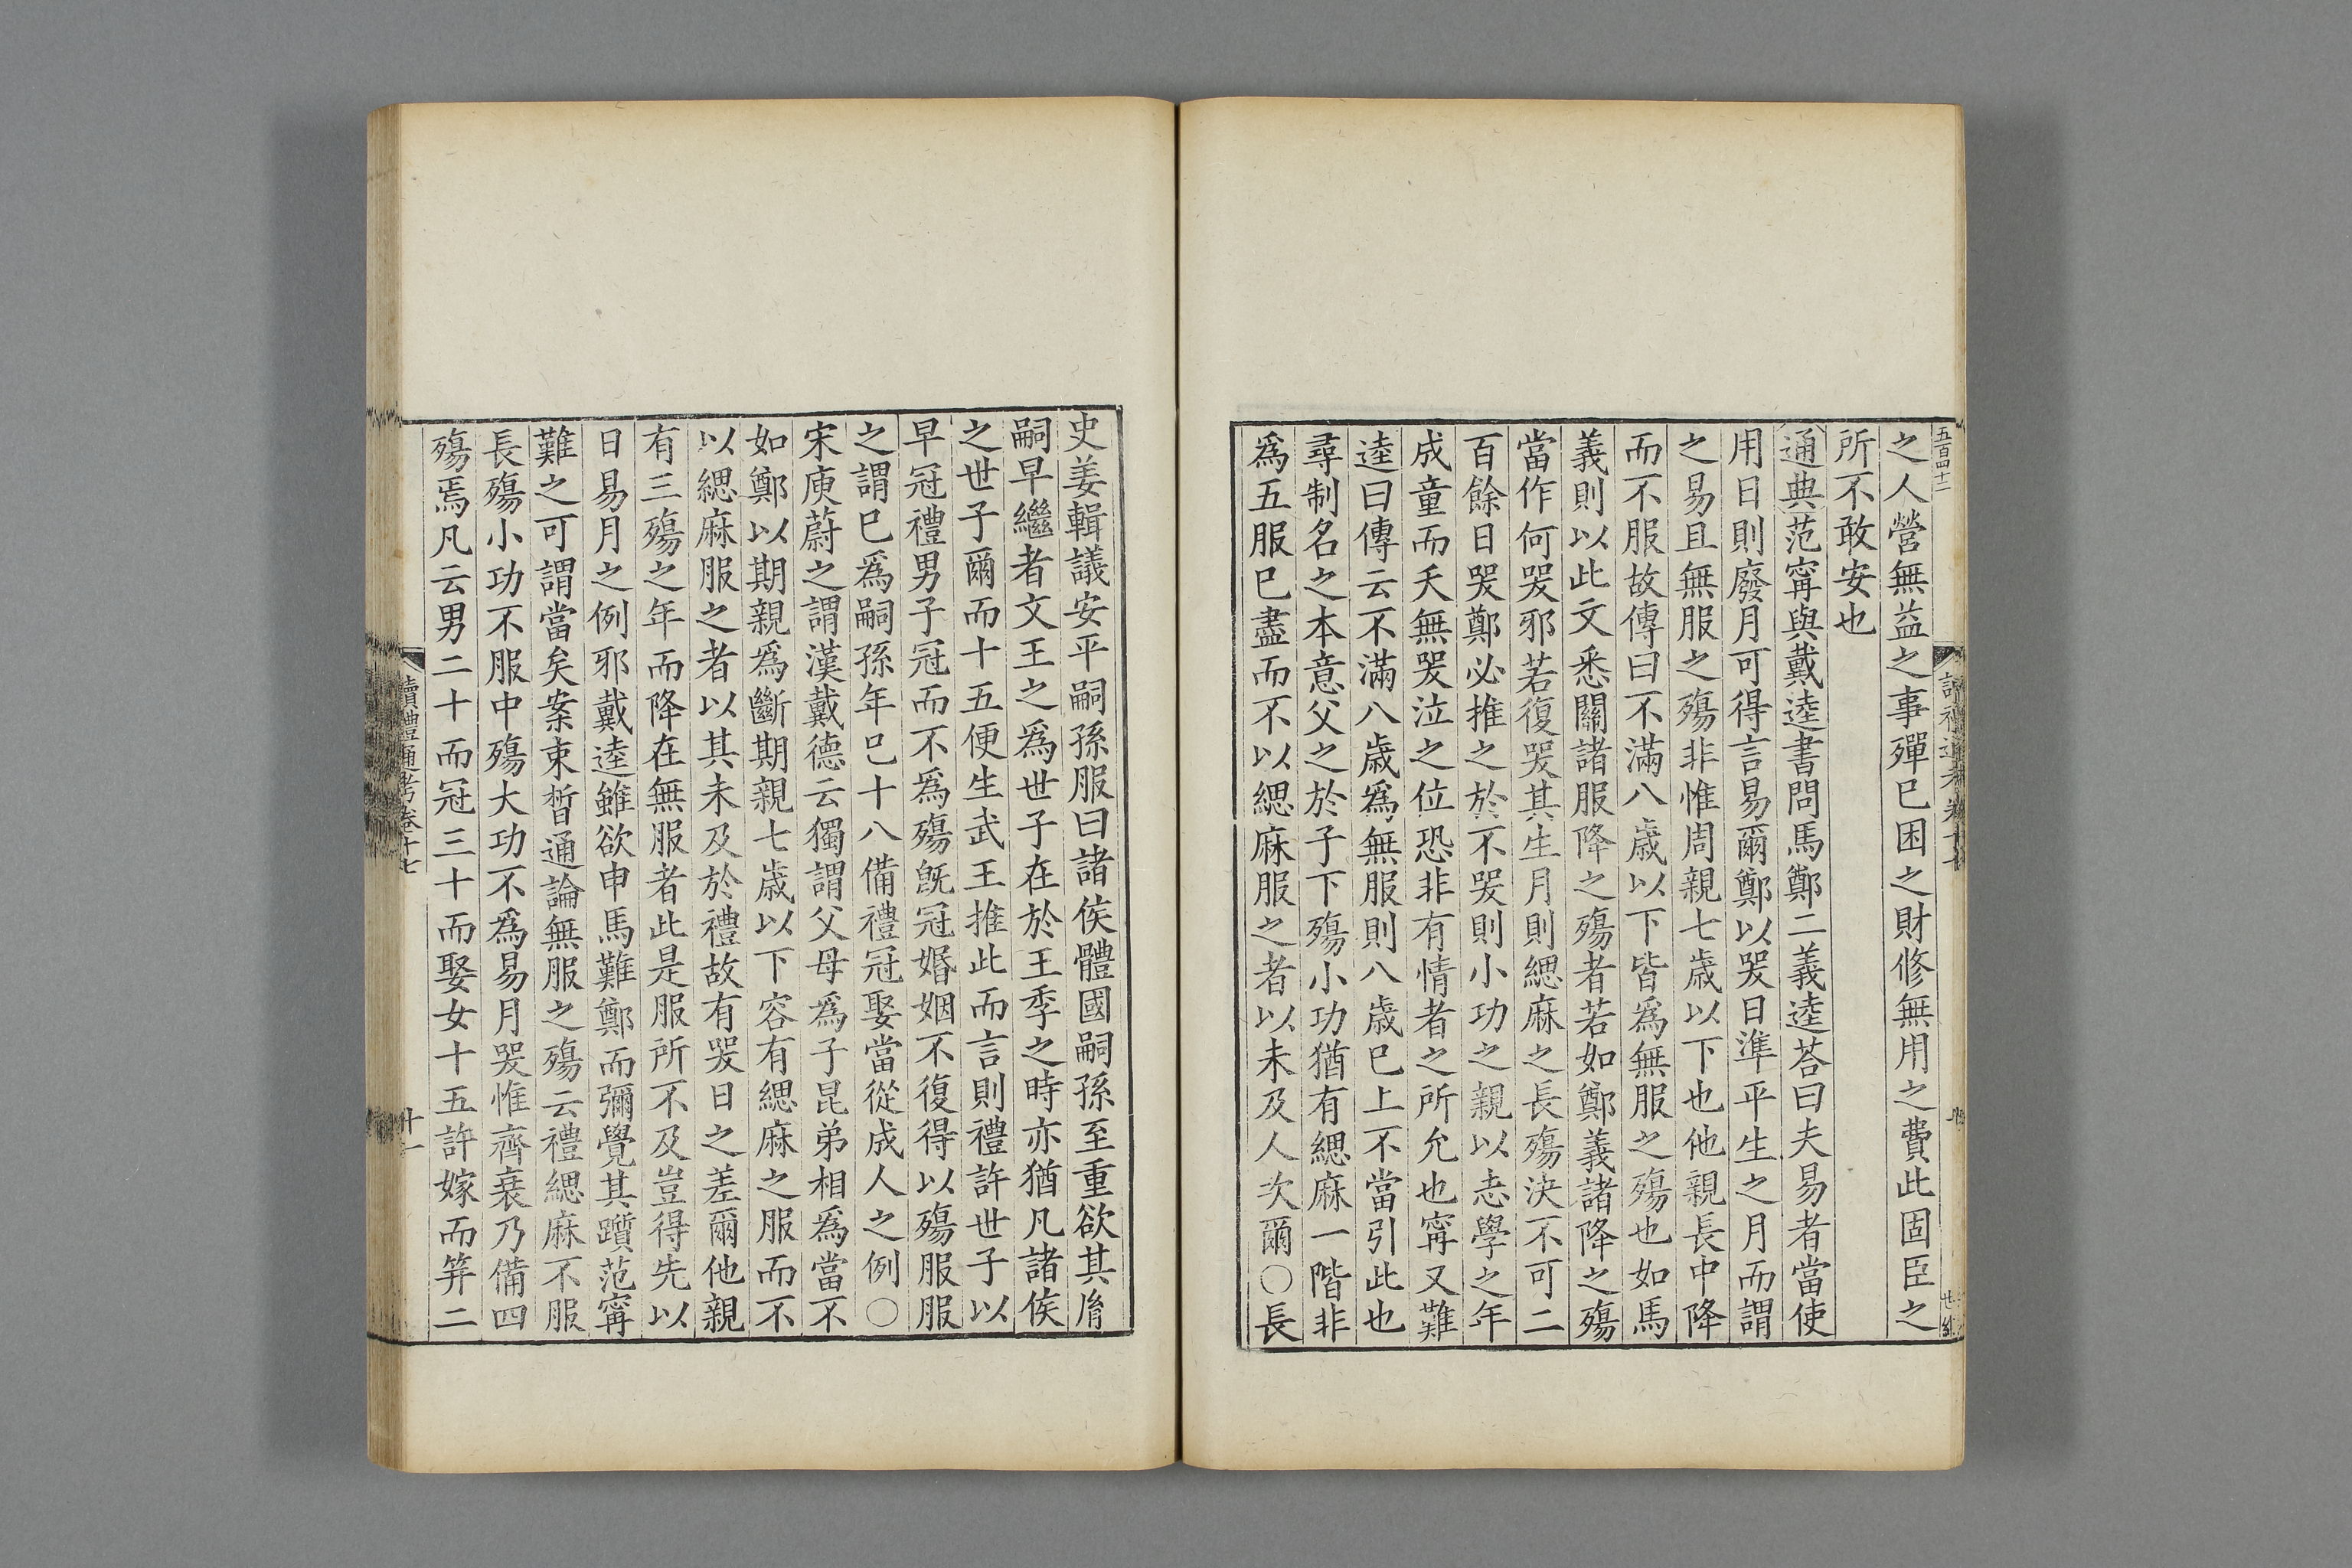 五百四十二
之人營無益之事殫已困之財修無用之費此固臣之
所不敢安也
通典范甯與戴逵書問馬鄭二義逵荅曰夫易者當使
用日則廢月可得言易爾鄭以哭日準平生之月而謂
之易且無服之殤非惟周親七歲以下也他親長中降
而不服故傳曰不滿八歲以下皆爲無服之殤也如馬
義則以此文悉關諸服降之殤者若如鄭義諸降之殤
當作何哭邪若復哭其生月則緦麻之長殤決不可二
百餘日哭鄭必推之於不哭則小功之親以志學之年
成童而夭無哭泣之位恐非有情者之所允也甯又難
逵曰傳云不滿八歲爲無服則八歲已上不當引此也
尋制名之本意父之於子下殤小功猶有緦麻一階非
爲五服已盡而不以緦麻服之者以未及人次爾○長
史姜輯議安平嗣孫服曰諸侯體國嗣孫至重欲其脩
嗣早繼者文王之爲世子在於王季之時亦猶凡諸侯
之世子爾而十五便生武王推此而言則禮許世子以
早冠禮男子冠而不爲殤旣冠婚姻不復得以殤服服
之謂已爲嗣孫年已十八備禮冠娶當從成人之例○
宋庾蔚之謂漢戴德云獨謂父母爲子昆弟相爲當不
如鄭以期親爲斷期親七歲以下容有緦麻之服而不
以緦麻服之者以其未及於禮故有哭日之差爾他親
有三殤之年而降在無服者此是服所不及豈得先以
日易月之例邪戴逵雖欲申馬難鄭而彌覺其躓范甯
難之可謂當矣案束晳通論無服之殤云禮緦麻不服
長殤小功不服中殤大功不爲易月哭惟齊衰乃備四
殤焉凡云男二十而冠三十而娶女十五許嫁而笄二
讀禮通考卷十七
十一